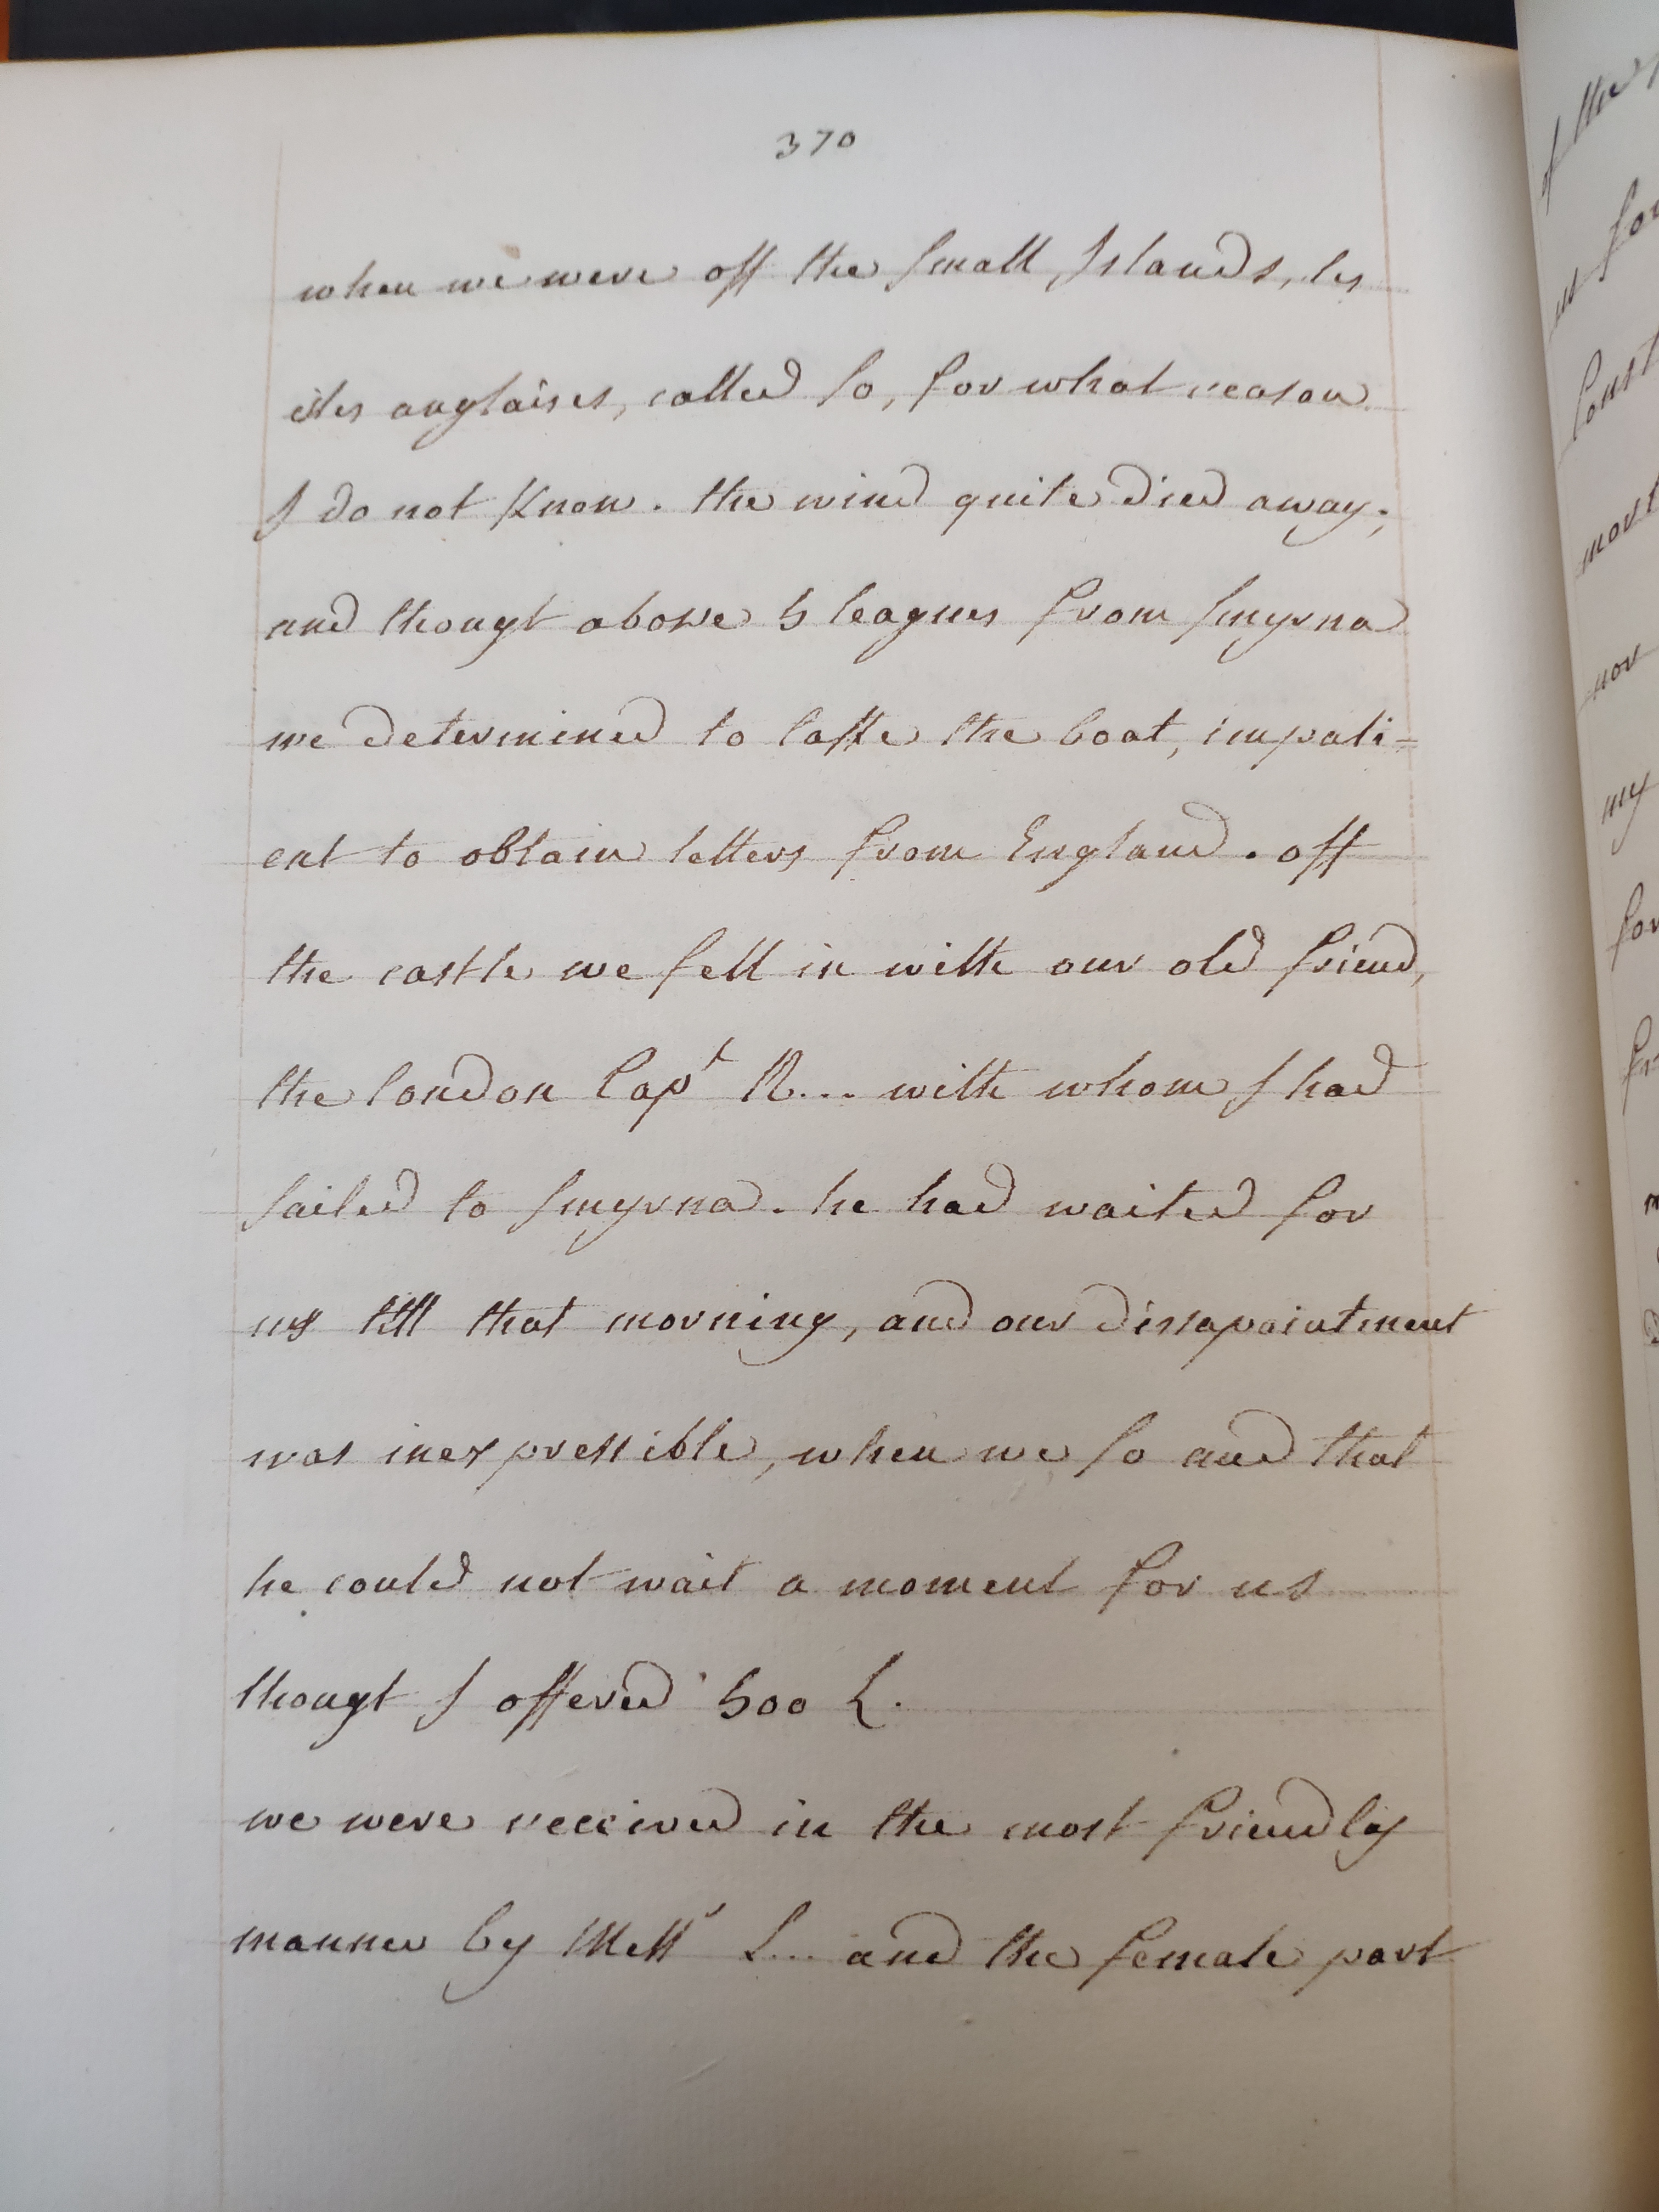 370
when we were off the small Islands, les
isles anglaises, called so, for what reason
I do not know. the wind quite died away;
and thougt above 5 leagues from smyrna
we determined to take the boat, impati=
ent to obtain letters from England. off
the castle we fell in with our old friend,
the london Capt R... with whom I had
sailed to smyrna. he had waited for
us till that morning, and our dissapointment
was inexpressible, when we found that
he could not wait a moment for us
thougt I offered 500 L.
we were received in the most friendly
manner by Messrs L... and the female part
of the
for
Const
nor
my
for